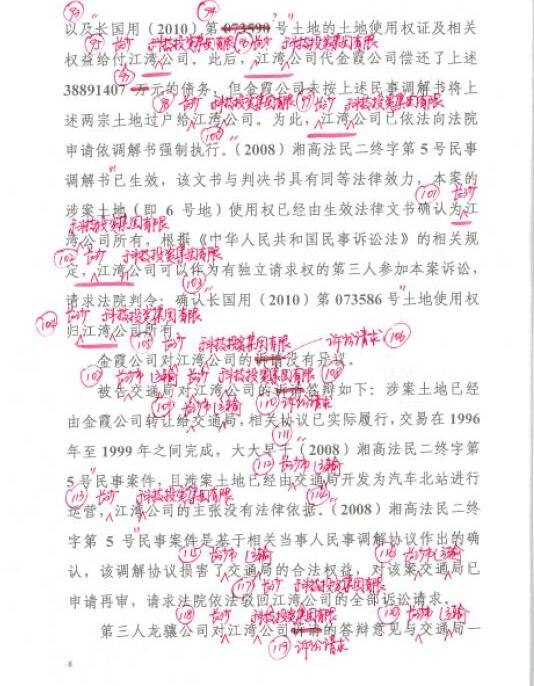 93 94
以及长国用（2010）第073590号土地的土地使用权证及相关
95 长沙 科技投资集团有限 96 长沙 科技投资集团有限
权益给付江湾公司。此后，江湾公司代金霞公司偿还了上述
38891407 万元的债务，但金霞公司未按上述民事调解书将上
98 长沙 科技投资集团有限 99 长沙 科技投资集团有限
述两宗土地过户给江湾公司。为此，江湾公司已依法向法院
100
申请依调解书强制执行。（2008）湘高法民二终字第5号民事
调解书"已生效，该文书与判决书具有同等法律效力，本案的
101 长沙
涉案土地（即 6 号地）使用权已经由生效法律文书确认为江
科技投资集团有限
湾公司所有，根据《中华人民共和国民事诉讼法》的相关规
102 长沙 科技投资集团有限
定，江湾公司可以作为有独立请求权的第三人参加本案诉讼，
103
请求法院判令：确认长国用（2010）第 073586 号"土地使用权
104 长沙 科技投资集团有限
归江湾公司所有。
105 长沙 科技投资集团有限 诉讼请求 106
金霞公司对江湾公司的诉请没有异议。
107 长沙市运输 科技投资集团有限 108
被告交通局对江湾公司的诉请答辩如下：涉案土地已经
109 长沙市运输 110 诉讼请求
由金霞公司转让给交通局，相关协议已实际履行，交易在 1996
111
年至 1999 年之间完成，大大早于（2008）湘高法民二终字第
112 长沙市运输
5号"民事案件，且涉案土地已经由交通局开发为汽车北站进行
113 长沙 科技投资集团有限 114
运营，江湾公司的主张没有法律依据。（2008）湘高法民二终
字第 5 号"民事案件是基于相关当事人民事调解协议作出的确
115 长沙市运输 116 长沙市运输
认，该调解协议损害了交通局的合法权益，对该案交通局已
117 长沙 科技投资集团有限
申请再审，请求法院依法驳回江湾公司的全部诉讼请求。
118 长沙 科技投资集团有限 120 长沙市运输
第三人龙骧公司对江湾公司诉请的答辩意见与交通局一
119 诉讼请求
8